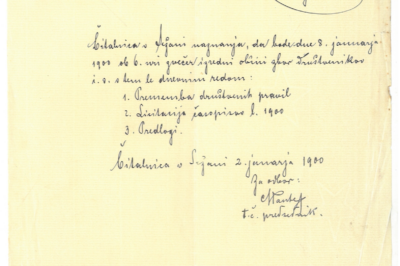 Čitalnica v Sežani naznanja, da bode dne 8. januarja
1900 ob 6. uri zvečer izredni občni zbor Društvenikov
i. s. s tem le dnevnim redom:
1. Prememba društvenih pravil
2. Licitacija časopisov l. 1900
3. Predlogi.
Čitalnica v Sežani 2. januarja 1900
Za odbor:
t. č. predsednik.